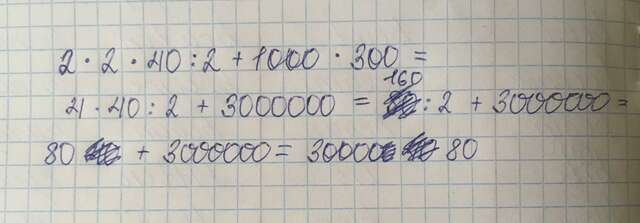 2 · 2 · 40 : 2 + 1000 · 300 =
4 · 40 : 2 + 3000000 = 160 : 2 + 3000000 =
80 + 3000000 = 30000 80